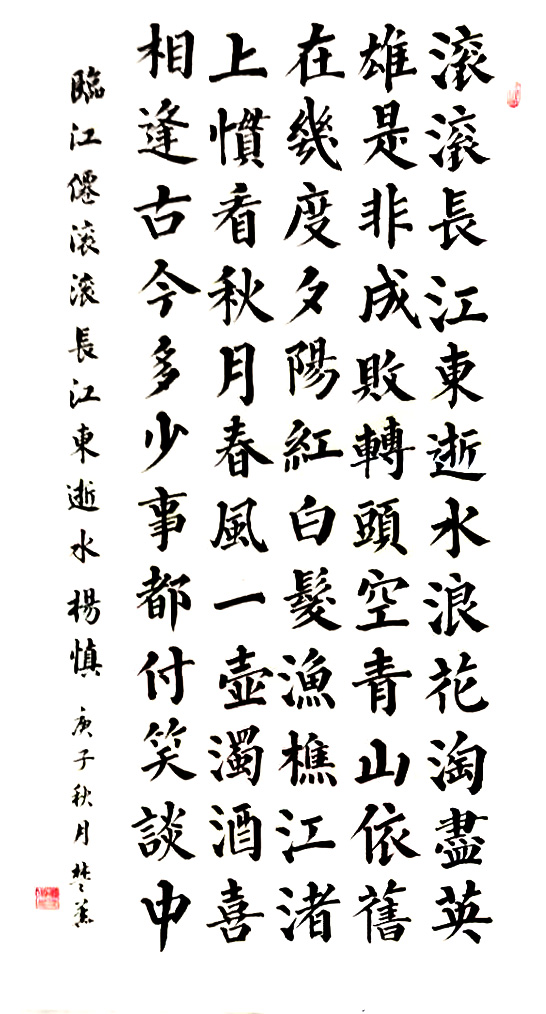 滚滚長江東逝水浪花淘盡英
雄是非成敗轉頭空青山依舊
在幾度夕陽紅白髮漁樵江渚
上慣看秋月春風一壺濁酒喜
相逢古今多少事都付笑談中
臨江僊滚滚長江東逝水楊慎庚子秋月